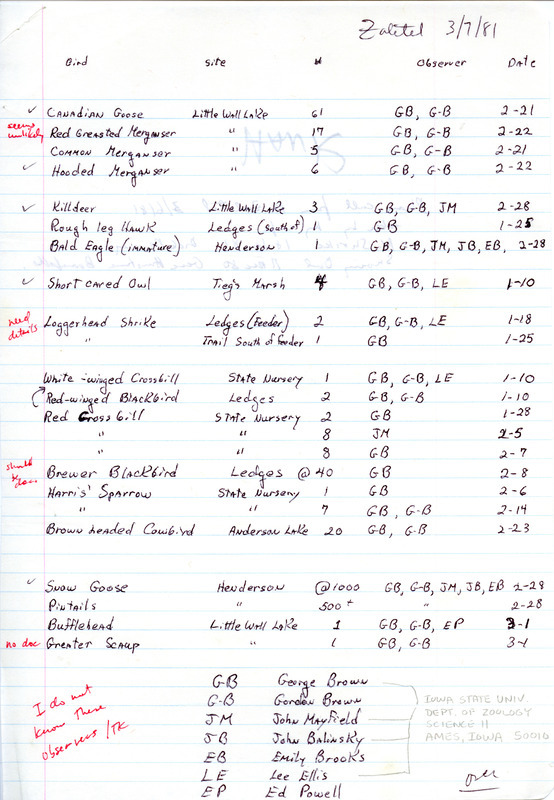 Zaletel 3/7/81
Bird Site # Observer Date
✓ Canadian Goose Little Wall Lake 61 GB, G-B 2-21
seems unlikely Red Breasted Merganser " 17 GB, G-B 2-22
Common Merganser " 5 GB, G-B 2-21
✓ Hooded Merganser " 6 GB, G-B 2-22
✓ Killdeer Little Wall Lake 3 GB, G-B, JM 2-28
Rough leg Hawk Ledges (south of) 1 GB 1-25
Bald Eagle (immature) Henderson 1 GB, G-B, JM, JB, EB, 2-28
✓ Short eared Owl Tieg's Marsh 4 GB, G-B, LE 1-10
need details Loggerhead Shrike Ledges (Feeder) 2 GB, G-B, LE 1-18
" Trail South of feeder 1 GB 1-25
White-winged Crossbill State Nursery 1 GB, G-B, LE 1-10
Red-winged Blackbird Ledges 2 GB, G-B 1-10
Red Crossbill State Nursery 2 GB 1-28
" " 8 JM 2-5
" " 8 GB 2-7
should be doc. Brewer Blackbird Ledges @ 40 GB 2-8
Harris' Sparrow State Nursery 1 GB 2-6
" " 7 GB, G-B 2-14
Brown headed Cowbird Anderson Lake 20 GB, G-B 2-23
✓ Snow Goose Henderson @1000 GB, G-B, JM, JB, EB 2-28
Pintails " 500+ " 2-28
Bufflehead Little Wall Lake 1 GB, G-B, EP 3-1
no doc Greater Scaup " 1 GB, G-B 3-1
I do not know these observers/TK
GB George Brown
G-B Gordon Brown
JM John Mayfield
JB John Balinsky
EB Emily Brooks
LE Lee Ellis
EP Ed Powell
Iowa State Univ.
Dept. of Zoology
Science II
Ames, Iowa 50010
over